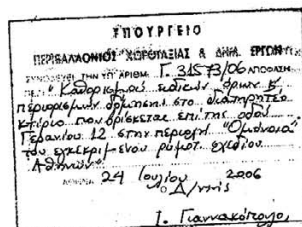 ΥΠΟΥΡΓΕΙΟ
ΠΕΡΙΒΑΛΛΟΝΤΟΣ ΧΩΡΟΤΑΞΙΑΣ & ΔΗΜ. ΕΡΓΩΝ
ΣΥΝΟΔΕΥΕΙ ΤΗΝ ΥΠ ΑΡΙΘΜ. Γ. 31573/06 ΑΠΟΦΑΣΗ
"Καθορισμός ειδικών όρων &
περιορισμών δόμησης στο διατηρητέο
κτίριο που βρίσκεται επί της οδού
Γερανίου 12 στην περιοχή "Ομόνοια"
του εγκεκριμένου ρυμοτ. σχεδίου
Αθηνών"
ΑΘΗΝΑ 24 Ιουλίου 2006
Ο Δ/ντής
Ι. Γιαννακόπουλος